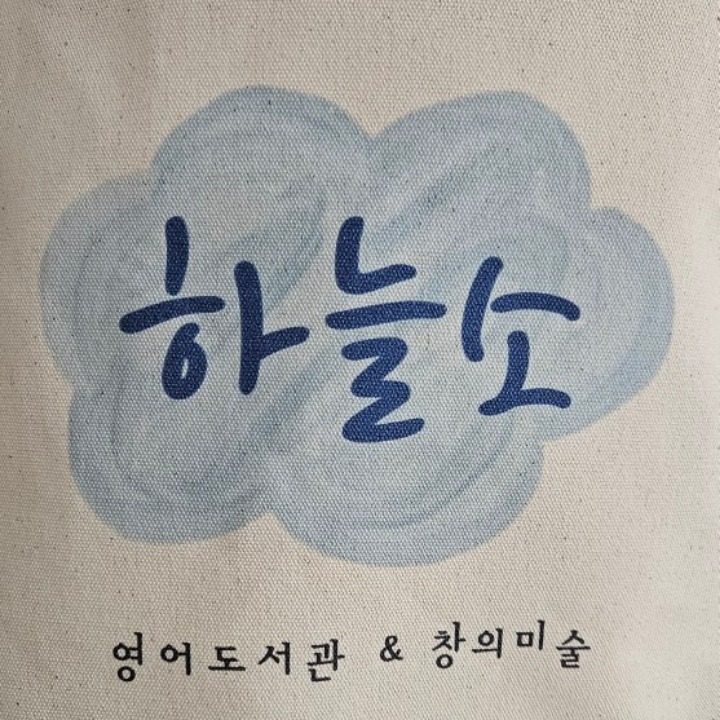 하늘소
영어도서관 & 창의미술